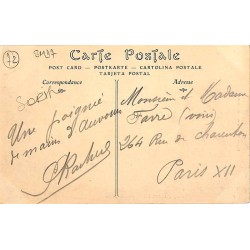 72
Carte Postale
POST CARD — POSTKARTE — CARTOLINA POSTALE
TARJETA POSTAL
Correspondance
Adresse
Une poignée
de mains d'Auvours
Monsieur et Madame
Favre
264 Rue de Charenton
Paris XII